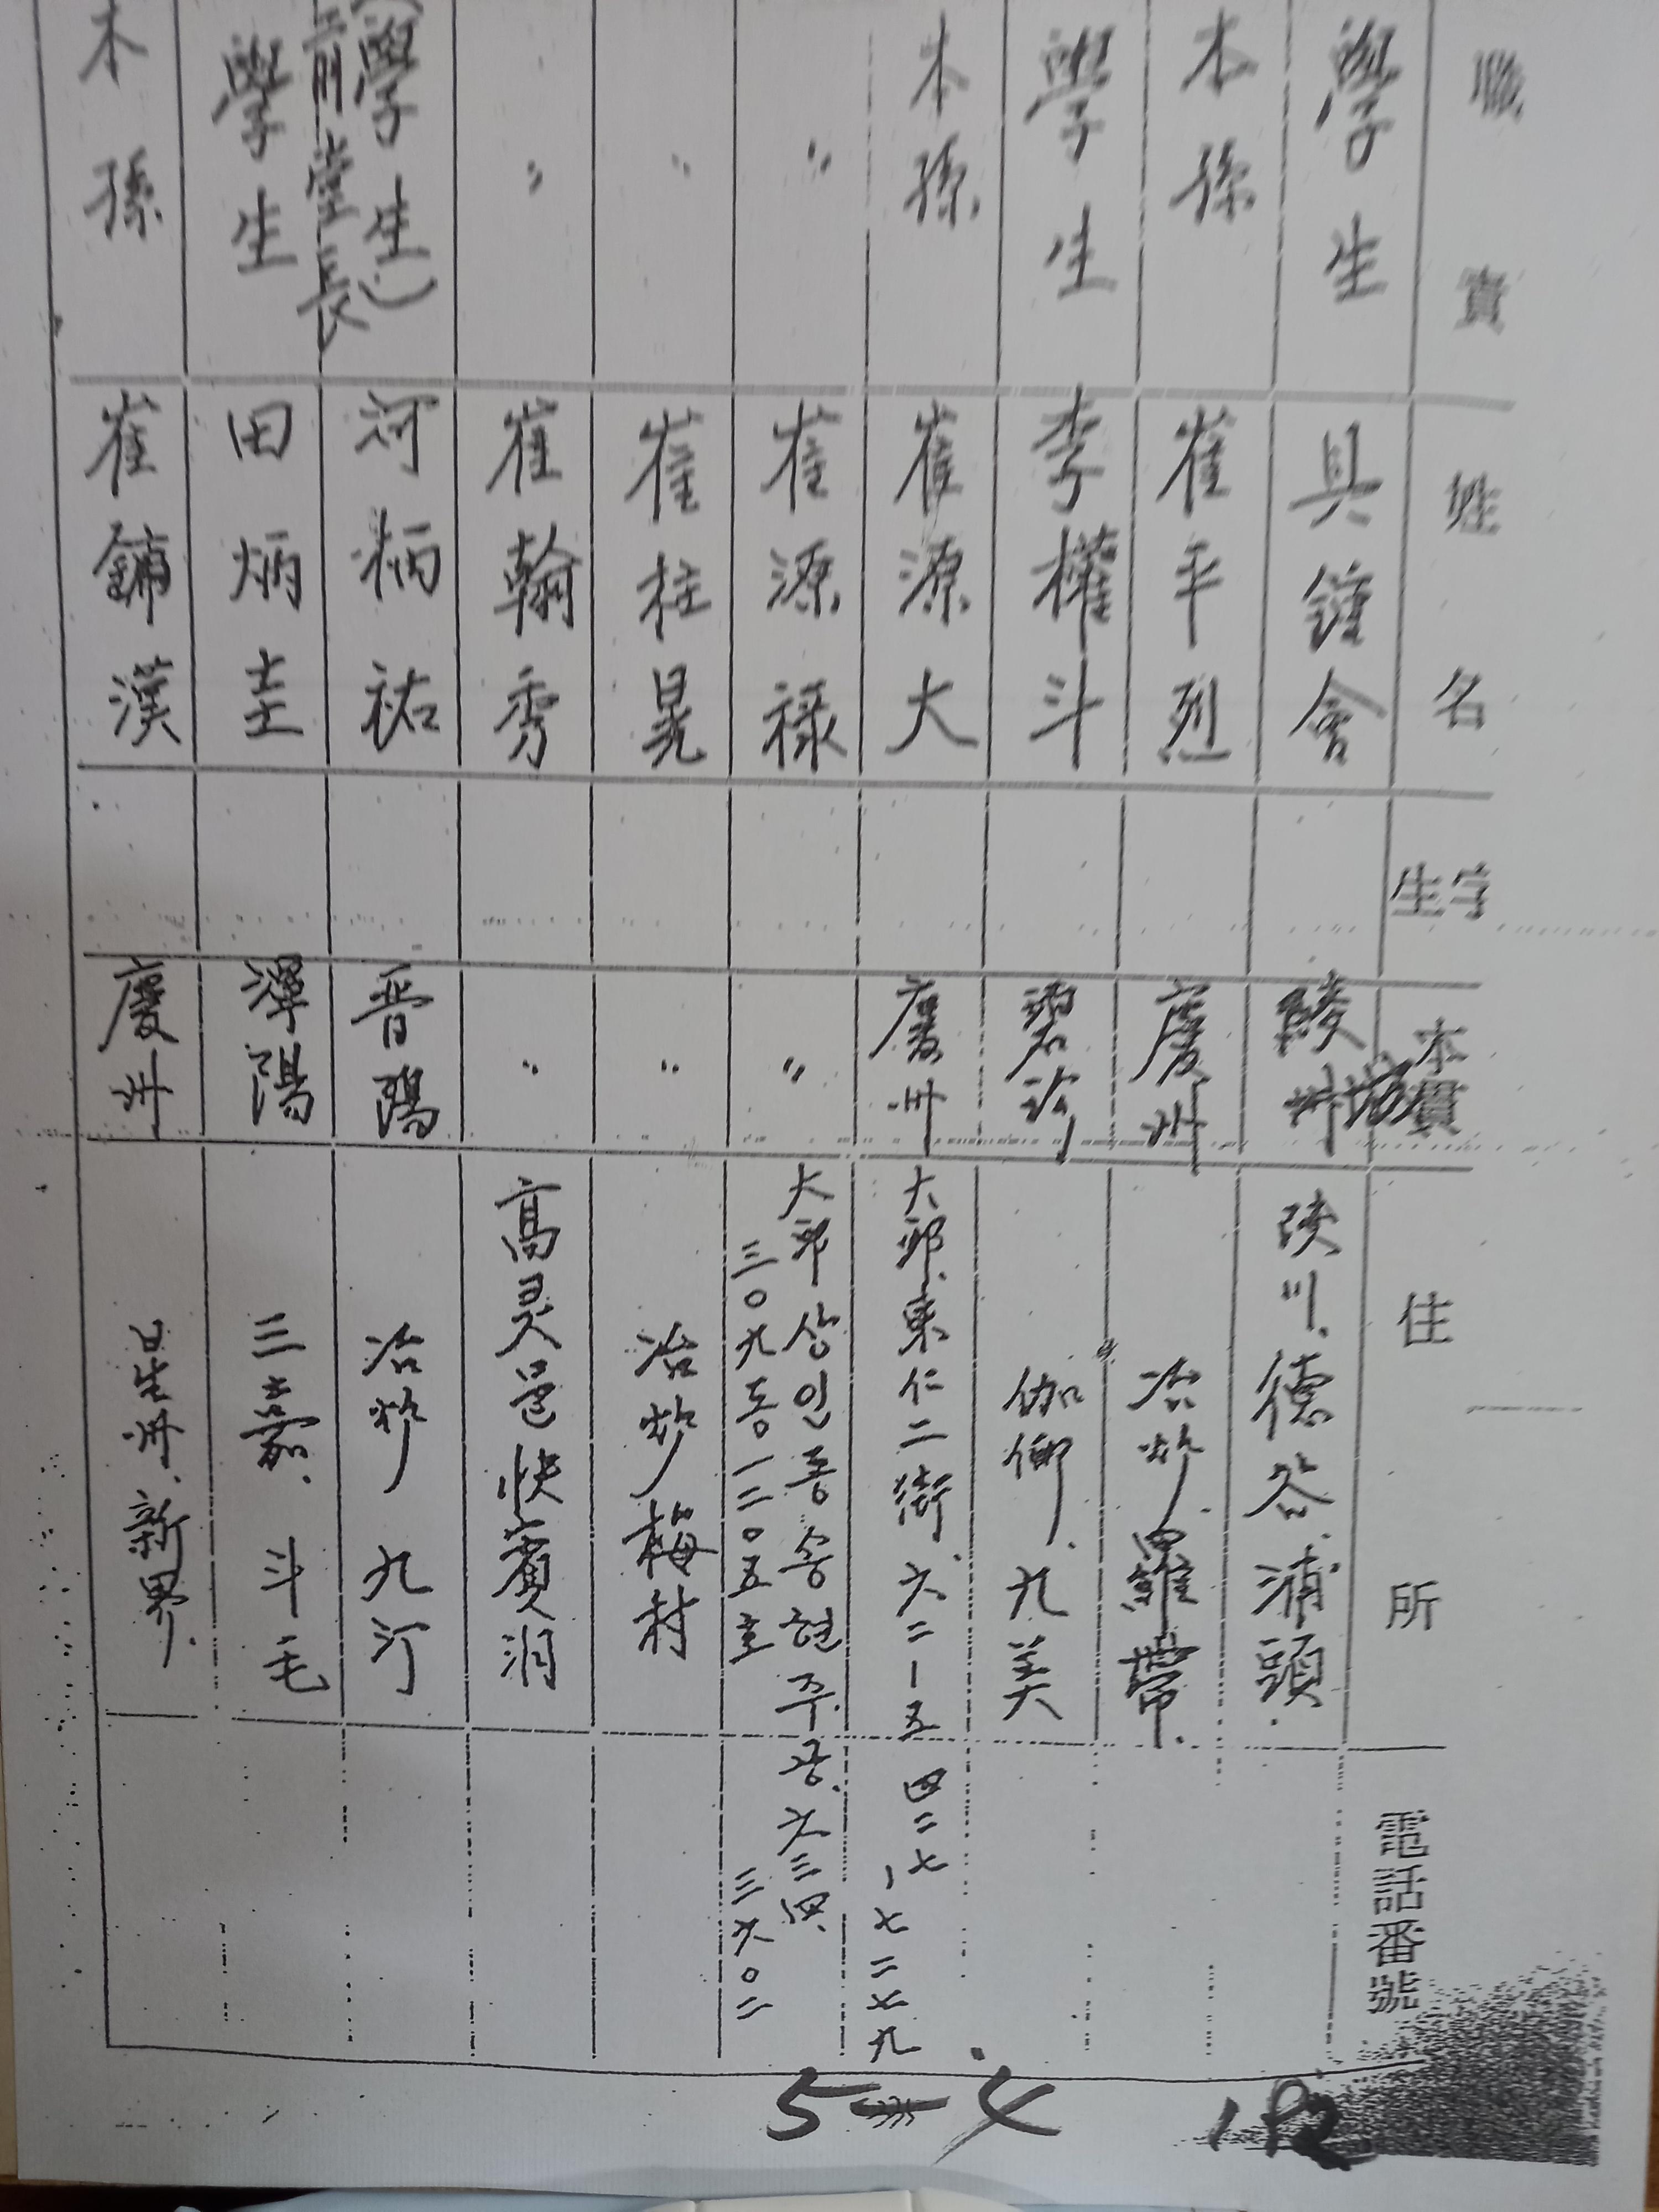 職責
姓名
字
生
本貫
住所
電話番號
學生
具鍾會
綾州
陜川.德谷.浦頭.
本孫
崔平烈
慶州
冶爐.羅帶.
學生
李權斗
碧珍
伽倻.九美
本孫
崔源大
慶州
大邱.東仁二街.六二一五
四二七
一七二七九
〃
崔源禄
〃
大邱 상인동 송현주공.六三四
三〇九동一二〇五호
三六〇二
〃
崔柱晃
〃
冶爐 梅村
〃
崔翰秀
〃
高灵邑快賓洞
(學生)
前堂長
河炳祐
晋陽
冶爐 九汀
學生
田炳圭
潭陽
三嘉.斗毛
本孫
崔鏞漢
慶州
星州.新界.
5-4
1P2